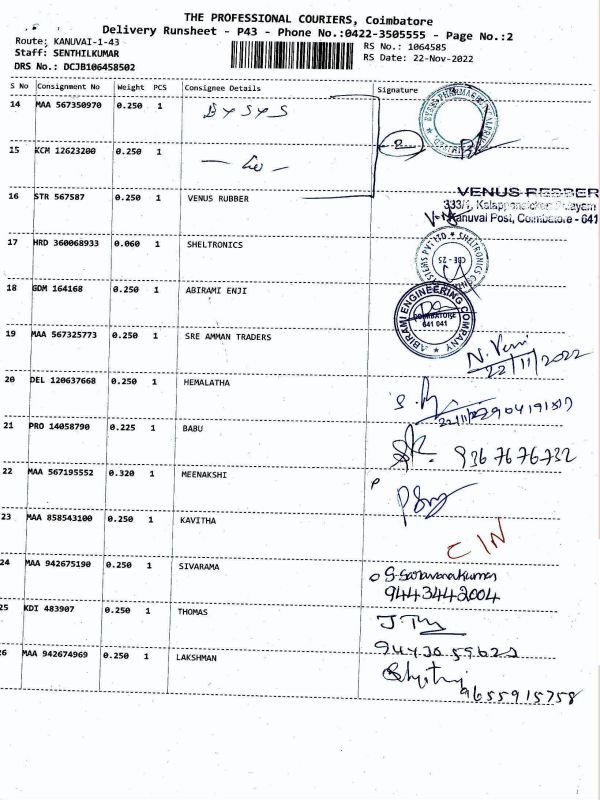 THE PROFESSIONAL COURIERS, Coimbatore
Delivery Runsheet - P43 - Phone No.:0422-3505555 - Page No.:2
Route: KANUVAI-1-43
RS No.: 1064585
Staff: SENTHILKUMAR
RS Date: 22-Nov-2022
DRS No.: DCJB106458502
S No Consignment No Weight PCS Consignee Details Signature
14 MAA 567350970 0.250 1 BYSYS
15 KCM 12623200 0.250 1
16 STR 567587 0.250 1 VENUS RUBBER
VENUS RUBBER
333/1, Kalappanaicken Palayam
Kanuvai Post, Coimbatore - 641
17 HRD 360068933 0.060 1 SHELTRONICS
18 GDM 164168 0.250 1 ABIRAMI ENJI
ABIRAMI ENGINEERING COMPANY
COIMBATORE
641 041
19 MAA 567325773 0.250 1 SRE AMMAN TRADERS
22/11/2022
20 DEL 120637668 0.250 1 HEMALATHA
21 PRO 14058790 0.225 1 BABU
9367676732
22 MAA 567195552 0.320 1 MEENAKSHI
P
23 MAA 858543100 0.250 1 KAVITHA
C IN
24 MAA 942675190 0.250 1 SIVARAMA
S. Saravanakumar
9443442004
25 KDI 483907 0.250 1 THOMAS
26 MAA 942674969 0.250 1 LAKSHMAN
9655915758